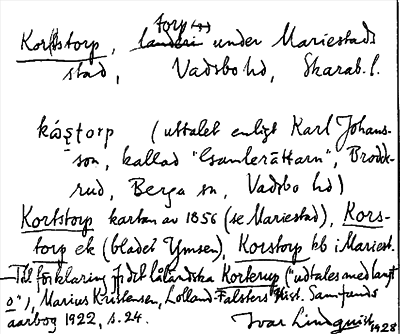 torp(s)
Korstorp, landeri under Mariestads
stad, Vadsbo hd, Skarab. l.
kåʂtorp (uttalet enligt Karl Johans-
son, kallad "Gamlerättarn", Brodde-
rud, Berga sn, Vadsbo hd)
Kortstorp kartan av 1856 (se Mariestad), Kors-
torp ek (bladet Ymsen), Korstorp kb i Mariest.
Till förklaring jfr det låländska Korterup ("udtales med langt
o"), Marius Kristensen, Lolland-Falsters Hist. Samfunds
aarbog 1922, s. 24. Ivar Lindquist 1928